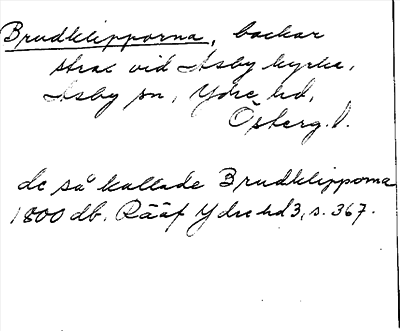 Brudklipporna, backar
strax vid Asby kyrka,
Asby sn, Ydre hd,
Österg. l.
de så kallade Brudklipporna
1800 db. Rääf Ydre hd 3, s. 367.